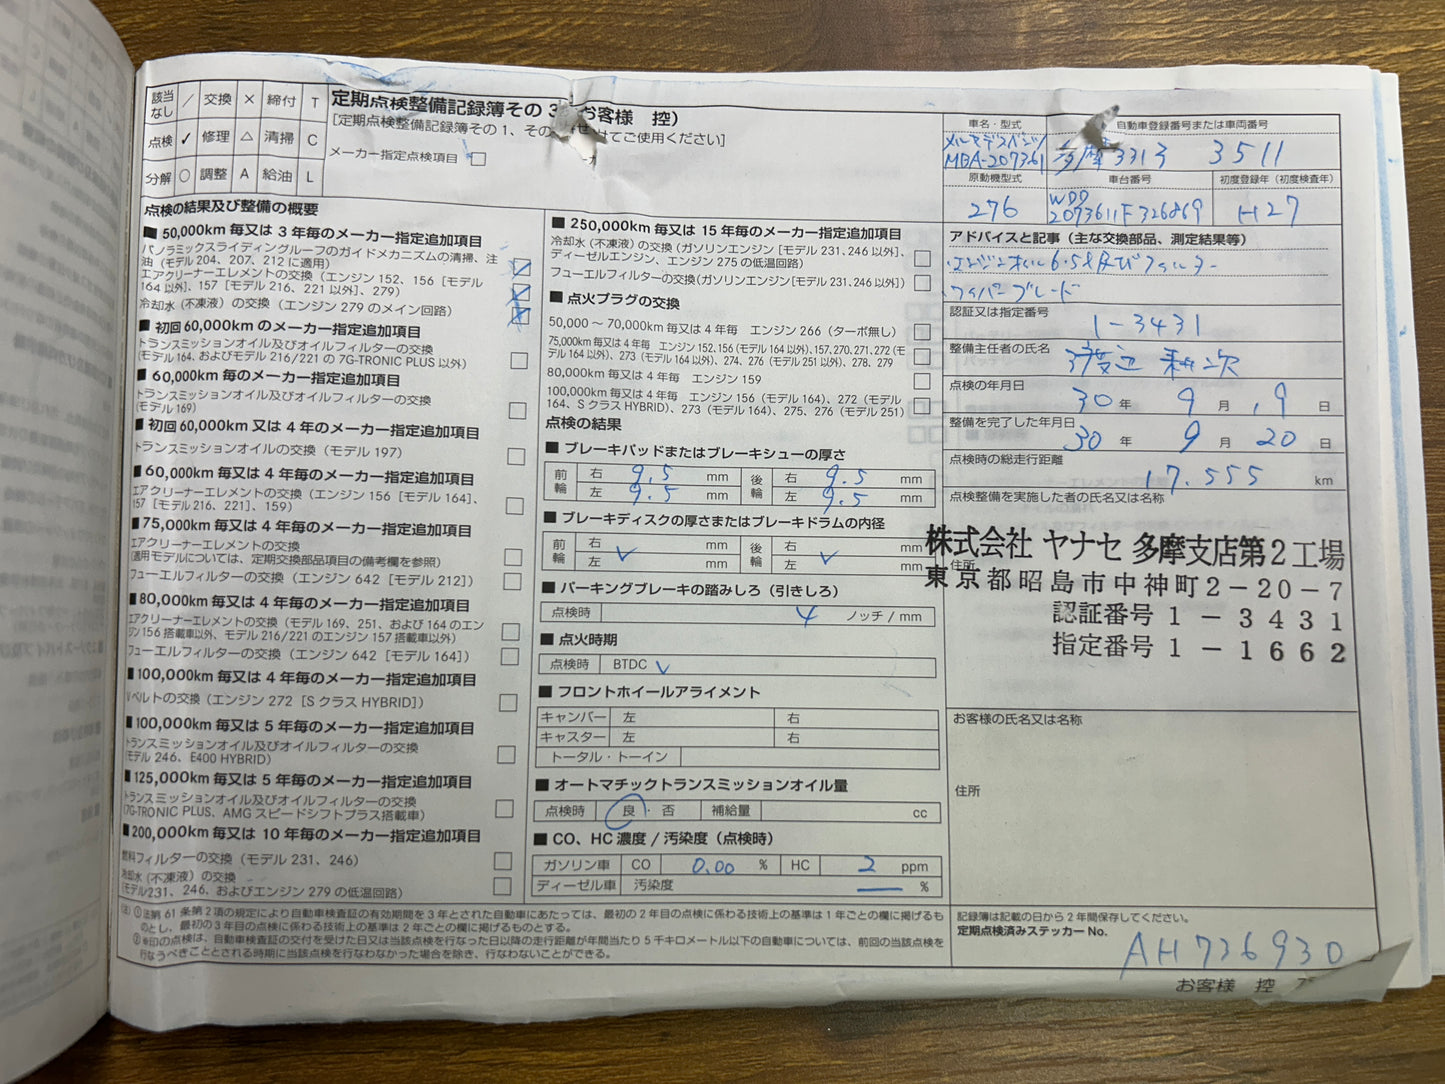 該当なし ／ 交換 × 締付 T
点検 ✓ 修理 △ 清掃 C
分解 ○ 調整 A 給油 L
定期点検整備記録簿その 3 お客様 控）
[定期点検整備記録簿その 1、その せ けてご使用ください]
メーカー指定点検項目 □
点検の結果及び整備の概要
■ 50,000km 毎又は 3 年毎のメーカー指定追加項目
パノラミックスライディングルーフのガイドメカニズムの清掃、注
油（モデル 204、207、212 に適用）
エアクリーナーエレメントの交換（エンジン 152、156［モデル
164 以外］、157［モデル 216、221 以外］、279）
冷却水（不凍液）の交換（エンジン 279 のメイン回路）
■ 初回 60,000km のメーカー指定追加項目
トランスミッションオイル及びオイルフィルターの交換
（モデル 164、およびモデル 216/221 の 7G-TRONIC PLUS 以外）
■ 60,000km 毎のメーカー指定追加項目
トランスミッションオイル及びオイルフィルターの交換
（モデル 169）
■ 初回 60,000km 又は 4 年毎のメーカー指定追加項目
トランスミッションオイルの交換（モデル 197）
■ 60,000km 毎又は 4 年毎のメーカー指定追加項目
エアクリーナーエレメントの交換（エンジン 156［モデル 164］、
157［モデル 216、221］、159）
■ 75,000km 毎又は 4 年毎のメーカー指定追加項目
エアクリーナーエレメントの交換
（適用モデルについては、定期交換部品項目の備考欄を参照）
フューエルフィルターの交換（エンジン 642［モデル 212］）
■ 80,000km 毎又は 4 年毎のメーカー指定追加項目
エアクリーナーエレメントの交換（モデル 169、251、および 164 のエン
ジン 156 搭載車以外、モデル 216/221 のエンジン 157 搭載車以外）
フューエルフィルターの交換（エンジン 642［モデル 164］）
■ 100,000km 毎又は 4 年毎のメーカー指定追加項目
Vベルトの交換（エンジン 272［S クラス HYBRID］）
■ 100,000km 毎又は 5 年毎のメーカー指定追加項目
トランスミッションオイル及びオイルフィルターの交換
（モデル 246、E400 HYBRID）
■ 125,000km 毎又は 5 年毎のメーカー指定追加項目
トランスミッションオイル及びオイルフィルターの交換
（7G-TRONIC PLUS、AMG スピードシフトプラス搭載車）
■ 200,000km 毎又は 10 年毎のメーカー指定追加項目
燃料フィルターの交換（モデル 231、246）
冷却水（不凍液）の交換
（モデル231、246、およびエンジン 279 の低温回路）
■ 250,000km 毎又は 15 年毎のメーカー指定追加項目
冷却水（不凍液）の交換（ガソリンエンジン［モデル 231、246 以外］、
ディーゼルエンジン、エンジン 275 の低温回路）
フューエルフィルターの交換（ガソリンエンジン［モデル 231、246 以外］）
■ 点火プラグの交換
50,000 ～ 70,000km 毎又は 4 年毎 エンジン 266（ターボ無し）
75,000km 毎又は 4 年毎 エンジン 152、156（モデル 164 以外）、157、270、271、272（モ
デル 164 以外）、273（モデル 164 以外）、274、276（モデル 251 以外）、278、279
80,000km 毎又は 4 年毎 エンジン 159
100,000km 毎又は 4 年毎 エンジン 156（モデル 164）、272（モデル
164、S クラス HYBRID）、273（モデル 164）、275、276（モデル 251）
点検の結果
■ ブレーキパッドまたはブレーキシューの厚さ
前輪 右 9.5 mm 後輪 右 9.5 mm
左 9.5 mm 左 9.5 mm
■ ブレーキディスクの厚さまたはブレーキドラムの内径
前輪 右 mm 後輪 右 mm
左 ✓ mm 左 ✓ mm
■ パーキングブレーキの踏みしろ（引きしろ）
点検時 4 ノッチ / mm
■ 点火時期
点検時 BTDC ✓
■ フロントホイールアライメント
キャンバー 左 右
キャスター 左 右
トータル・トーイン
■ オートマチックトランスミッションオイル量
点検時 良 ・ 否 補給量 cc
■ CO、HC 濃度 / 汚染度（点検時）
ガソリン車 CO 0.00 % HC 2 ppm
ディーゼル車 汚染度 — %
車名・型式 自動車登録番号または車両番号
メルセデスベンツ
MBA-207361 多摩 331ろ 3511
原動機型式 車台番号 初度登録年（初度検査年）
276 WDD
2073611F326869 H27
アドバイスと記事（主な交換部品、測定結果等）
・エンジンオイル 6.5ℓ及びフィルター
・ワイパーブレード
認証又は指定番号
1-3431
整備主任者の氏名
渡辺
点検の年月日
30 年 9 月 19 日
整備を完了した年月日
30 年 9 月 20 日
点検時の総走行距離
17.555 km
点検整備を実施した者の氏名又は名称
株式会社 ヤナセ 多摩支店第2工場
住所
東京都昭島市中神町2-20-7
認証番号 1 － 3431
指定番号 1 － 1662
お客様の氏名又は名称
住所
（注）①法第 61 条第 2 項の規定により自動車検査証の有効期間を 3 年とされた自動車にあたっては、最初の 2 年目の点検に係わる技術上の基準は 1 年ごとの欄に掲げるも
のとし、最初の 3 年目の点検に係わる技術上の基準は 2 年ごとの欄に掲げるものとする。
②※印の点検は、自動車検査証の交付を受けた日又は当該点検を行なった日以降の走行距離が年間当たり 5 千キロメートル以下の自動車については、前回の当該点検を
行なうべきこととされる時期に当該点検を行なわなかった場合を除き、行なわないことができる。
記録簿は記載の日から 2 年間保存してください。
定期点検済みステッカー No.
AH736930
お客様 控